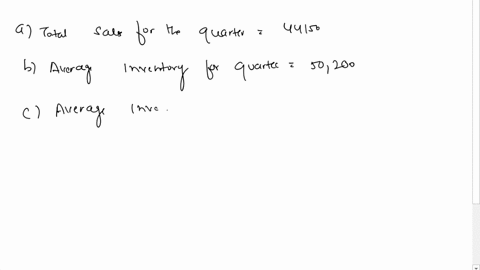 a) Total Sales for the quarter = 44150
b) Average Inventory for quarter = 50,200
c) Average Inve